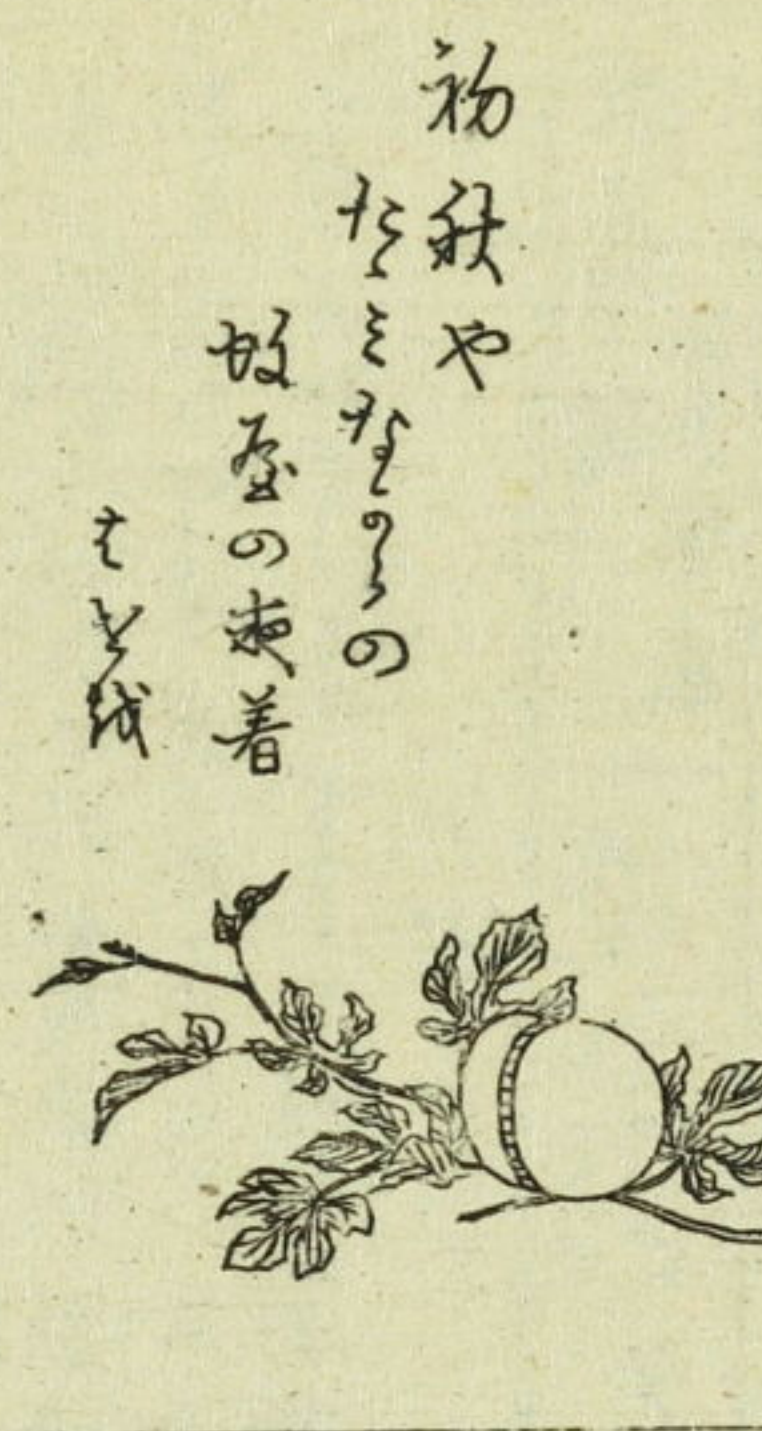 初秋や
たゝミなからの
蚊屋の夜着
はせ越